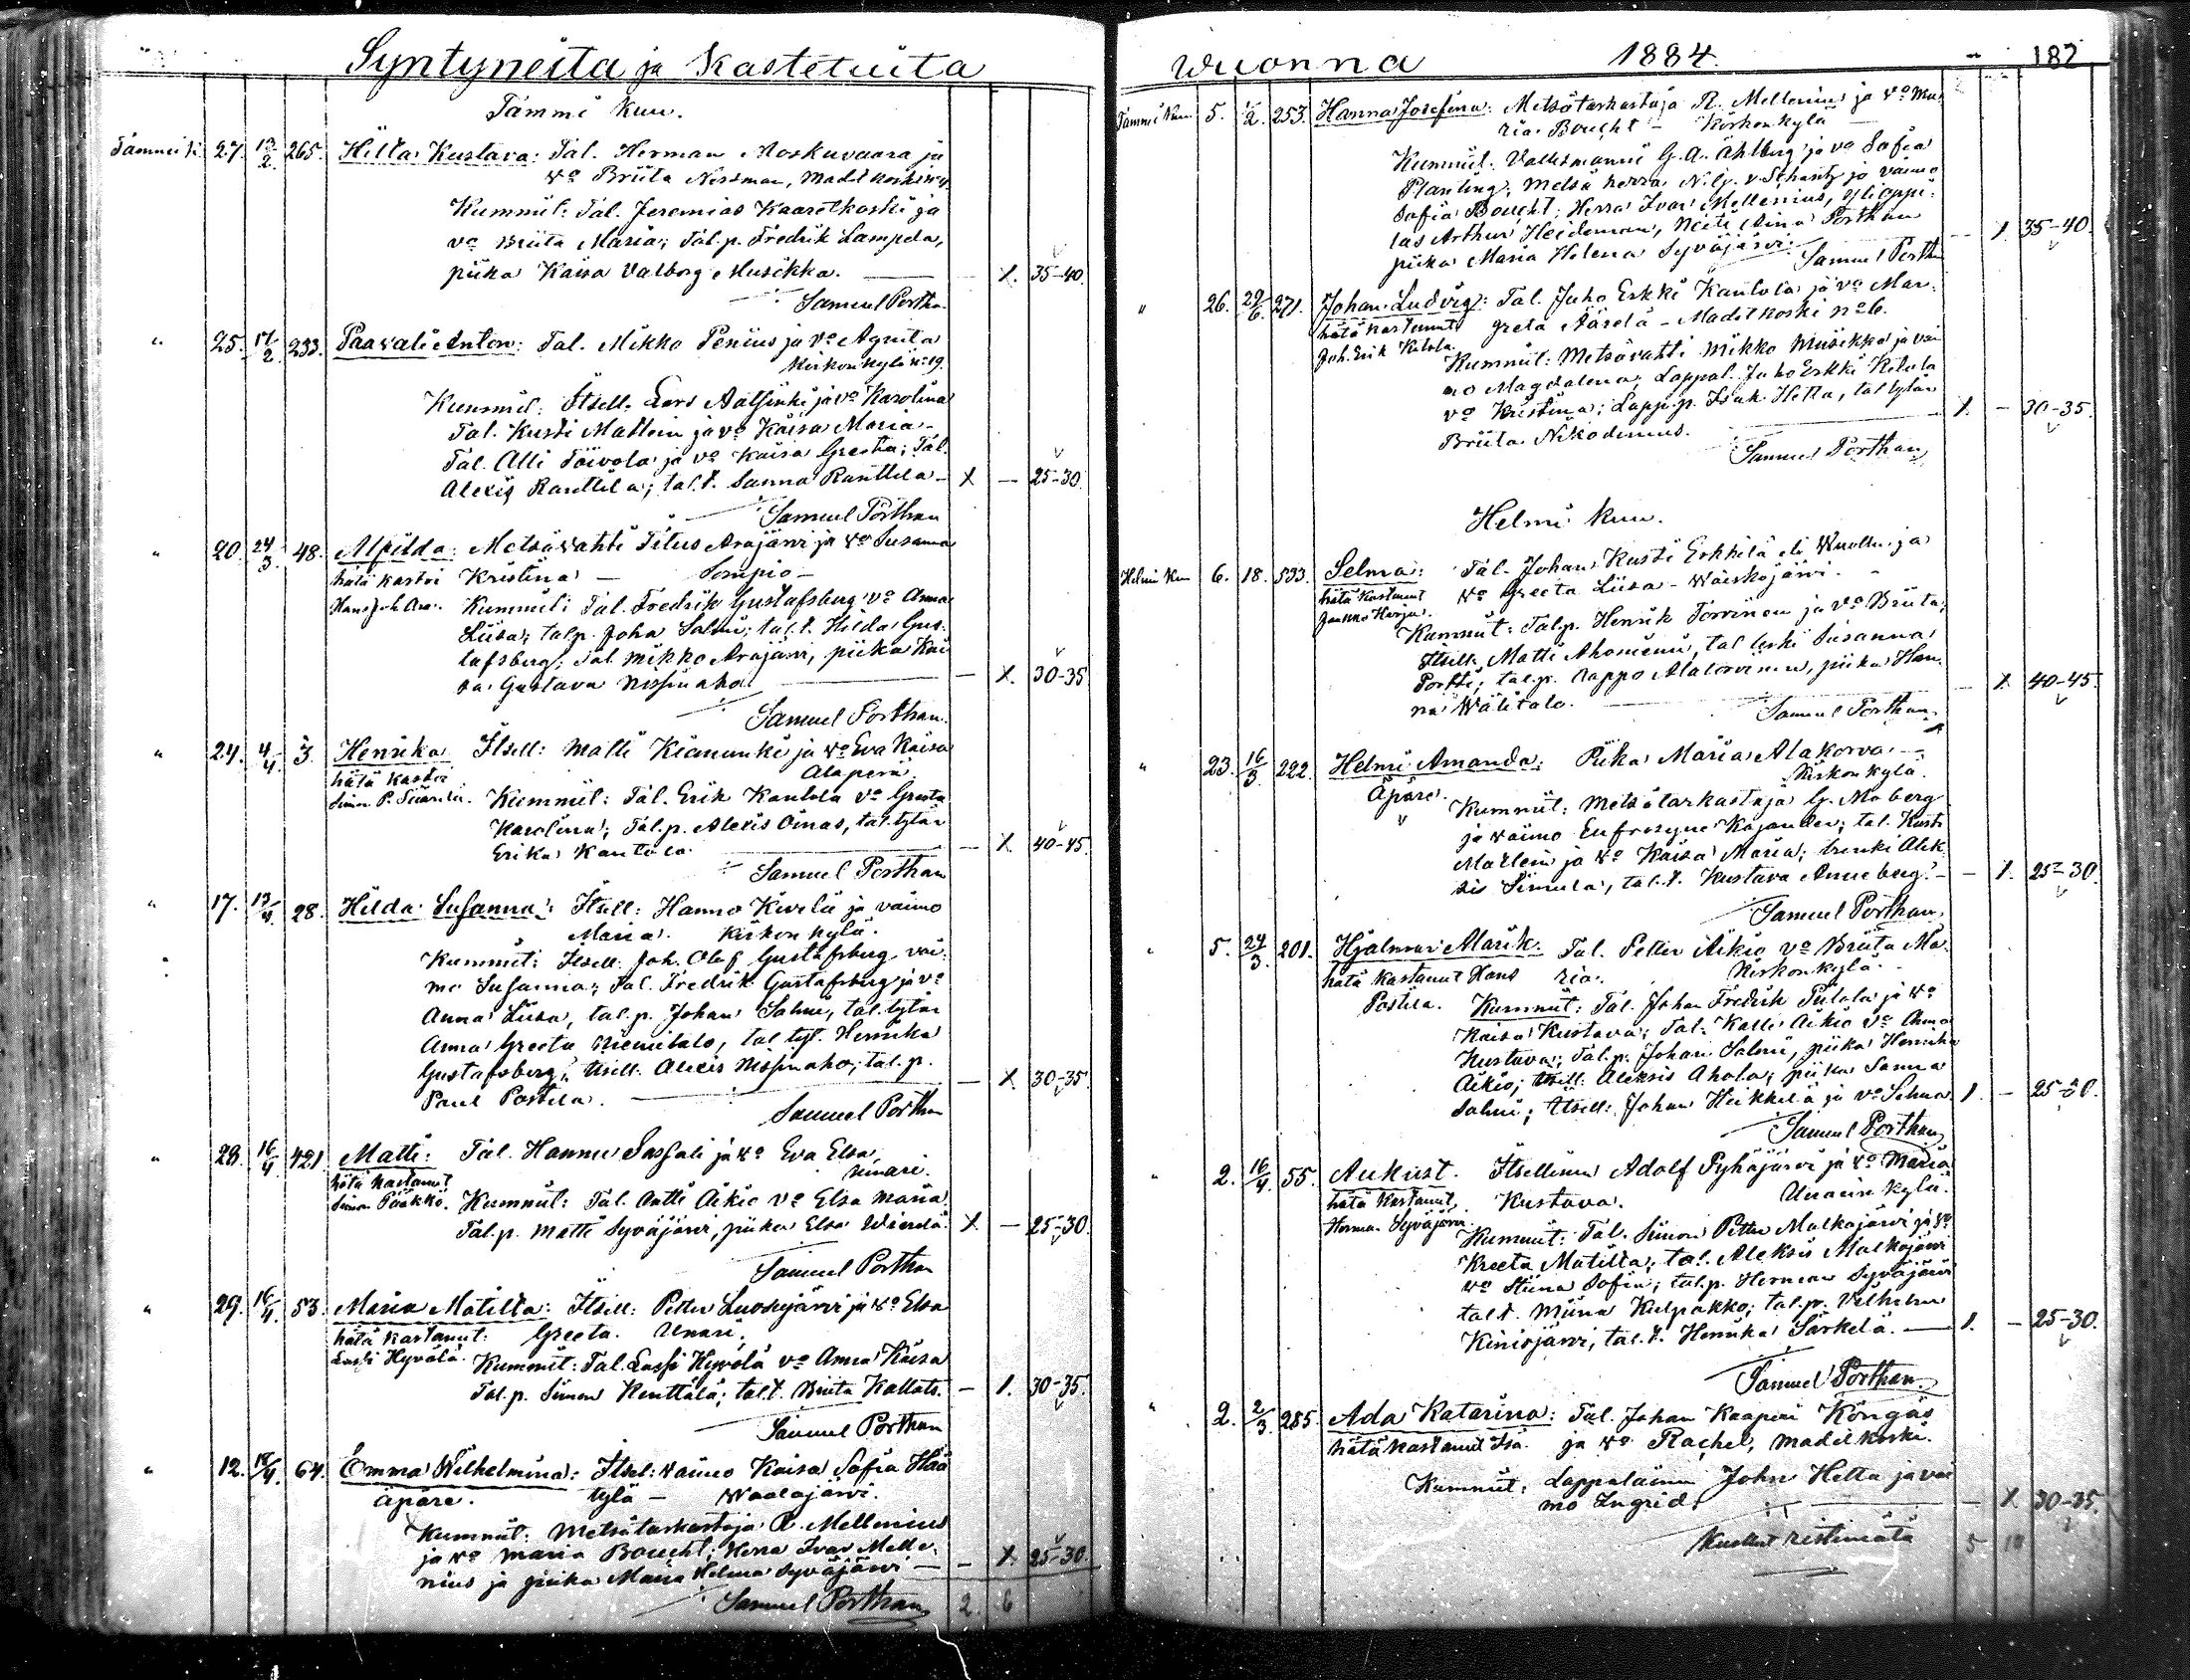 Syntyneitä ja Kastetuita
Tammi kuu.
Tammi k. 27. 12/2 265. Hilta Kustava: Tal. Herman Moskuvaara ja
vo Briita Nissman, Madetkoski
Kummit: Tal. Jeremias Kaaretkoski ja
vo Briita Maria; Tal. p. Fredrik Lampela,
piika Kaisa Valborg Musikka. — — X. 35-40.
Samuel Portha
" 25. 17/2 233. Paavali Anton: Tal. Mikko Penius ja vo Agneta
Kirkonkylä No 19.
Kummit: Itsell. Lars Aaltsinki ja vo Karolina
Tal. Kusti Mattein ja vo Kaisa Maria
Tal. Alli Toivola ja vo Kaisa Greeta; Tal.
Alexis Ranttila; tal. t. Sanna Ranttila — X — 25-30.
Samuel Porthan
" 20. 24/3 48. Alfilda: Metsävahti Titus Arajärvi ja vo Susanna
hätä kastoi Kristina — Sompio —
Hans Joh. Ara. Kummit: Tal. Fredrik Gustafsberg vo Anna
Liisa; tal. p. Joha Salmi; tal. t. Hilda Gus-
tafsberg; Tal. Mikko Arajärvi, piika Kai
sa Gustava Nissinaho — — X. 30-35
Samuel Porthan.
" 24. 4/4 3. Henrika Itsell: Matti Kiemunki ja vo Eva Kaisa
hätä kastoi Alaperä
Simon P. Siirilä. Kummit: Tal. Erik Kantola vo Greeta
Karolina; Tal. p. Alexis Oinas, tal. tytär
Erika Kantola. — X. 40-45
Samuel Porthan
" 17. 13/4 28. Hilda Susanna: Itsell: Hannu Kivelä ja vaimo
Maria. Kirkonkylä.
Kummit: Itsell. Joh. Olof Gustafsberg vai
mo Susanna; Tal. Fredrik Gustafsberg ja vo
Anna Liisa, tal. p. Johan Salmi, tal. tytär
Anna Greeta Niemitalo, tal. tyt. Henrika
Gustafsberg; Itsell. Alexis Nissinaho; tal. p.
Paul Postila. — X. 30-35
Samuel Portha
" 28. 16/4 421. Matti: Tal. Hannu Sassali ja vo Eva Elsa
hätä kastanut Unari.
Simon Pääkkö. Kummit: Tal. Antti Aikio vo Elsa Maria
Tal. p. Matti Syväjärvi, piika Elsa X — 25-30
Samuel Porthan
" 29. 16/4 53. Maria Matilta: Itsell: Petter Luosujärvi ja vo Elsa
hätä kastanut: Greeta. Unari.
Lassi Hyvölä. Kummit: Tal. Lassi Hyvölä vo Anna Kaisa
Tal. p. Simon Kenttälä; tal. t. Briita Kallats. — X. 30-35.
Samuel Porthan
" 12. 18/4 64. Emma Wilhelmina: Itsel: vaimo Kaisa Sofia Hää
äpäre. tylä — Waalajärvi.
Kummit: Metsätarkastaja R. Mellenius
ja vo Maria Boucht; Herra Ivar Melle-
nius ja piika Maria Helena Syväjärvi — — X. 25-30.
Samuel Porthan 2 6
Wuonna 1884. 182
Tammi Kuu 5. 1/2 253. Hanna Josefina: Metsätarkastaja R. Mellenius ja vo Ma
ria Boucht — Kirkonkylä
Kummit: Vallesmanni G. A. Ahlberg ja vo Sofia
Planting; Metsä herra N. G. v. Schantz ja vaimo
Sofia Boucht; Herra Ivar Mellenius, ylioppi-
las Arthur Heideman, Neiti Aina Porthan
piika Maria Helena Syväjärvi. — X. 35-40.
Samuel Portha
" 26. 29/6 271. Johan Ludvig: Tal. Juho Erkki Kantola ja vo Mar-
hätä kastanut greta Äärelä — Madetkoski No 6.
Joh. Erik Kitola. Kummit: Metsävahti Mikko Musikka ja vai
mo Magdalena; Lappal. Juho Erkki Kitola
vo Kristina; Lapp. p. Isak Hetta, tal tytär
Briita Nikodemus. X. — 30-35.
Samuel Porthan
Helmi kuu.
Helmi Kuu 6. 18. 533. Selma: Tal. Johan Kusti Erkkilä eli ja
hätä kastanut vo Greeta Liisa — Waiskojärvi.
Jaakko Harju. Kummit: Tal. p. Henrik Torvinen ja vo Briita;
Itsell. Matti Ahoniemi, tal leski Susanna
Portti; tal. p. Aappo Alatorvinen, piika Han-
na Wälitalo. — X. 40-45.
Samuel Porthan
" 23. 16/3 222. Helmi Amanda: Piika Maria Alakorva —
äpäre. Kirkonkylä.
Kummit: Metsätarkastaja G. Moberg
ja vaimo Eufrosyne Kajander; tal. Kusti
Mattein ja vo Kaisa Maria; trenki Alek-
sis Simula, tal. t. Kustava Anneberg. — — X. 25-30.
Samuel Porthan
" 5. 24/3 201. Hjalmar Alarik. Tal. Petter Aikio vo Briita Ma-
hätä kastanut Hans ria. Kirkonkylä.
Postila. Kummit: Tal. Johan Fredrik Pulola ja vo
Kaisa Kustava; Tal. Kalle Aikio vo Anna
Kustava; Tal. p. Johan Salmi, piika Henrika
Aikio; Itsell: Aleksis Ahola; piika Sanna
Salmi; Itsell: Johan Heikkilä ja vo Selma X. — 25-30.
Samuel Porthan
" 2. 16/4 55. Aukust. Itsellinen Adolf Pyhäjärvi ja vo Maria
hätä kastanut, Kustava. Unarin kylä.
Herman Syväjärvi Kummit: Tal. Simon Petter Malkajärvi ja vo
Kreeta Matilta; tal. Aleksis Malkajärvi
vo Stiina Sofia; tal. p. Herman Syväjärvi
tal. t. Miina Kulpakko; tal. p. Vilhelm
Kinisjärvi, tal. t. Henrika Särkelä. — X. — 25-30.
Samuel Porthan.
" 2. 2/3 285. Ada Katarina: Tal. Johan Kaaperi Köngäs
hätä kastanut Isä. ja vo Rachel, Madetkoski.
Kummit: Lappalainen John Hetta ja vai
mo Ingrid. — X. 30-35.
Kuollut ristimätä 5 10